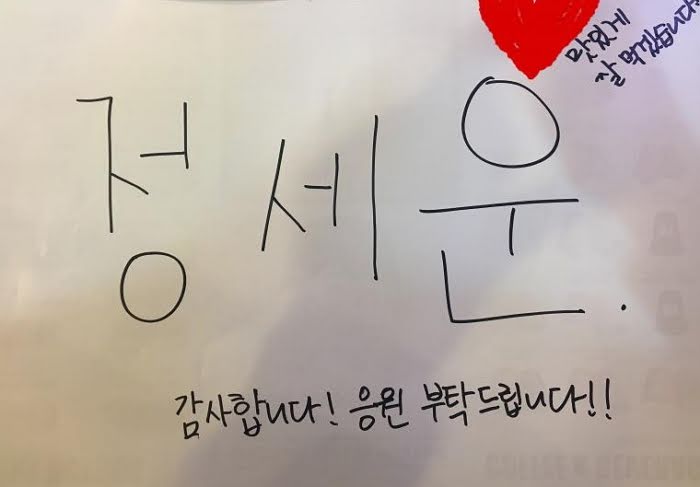 맛있게
잘 먹겠습니다
정세운.
감사합니다! 응원 부탁드립니다!!